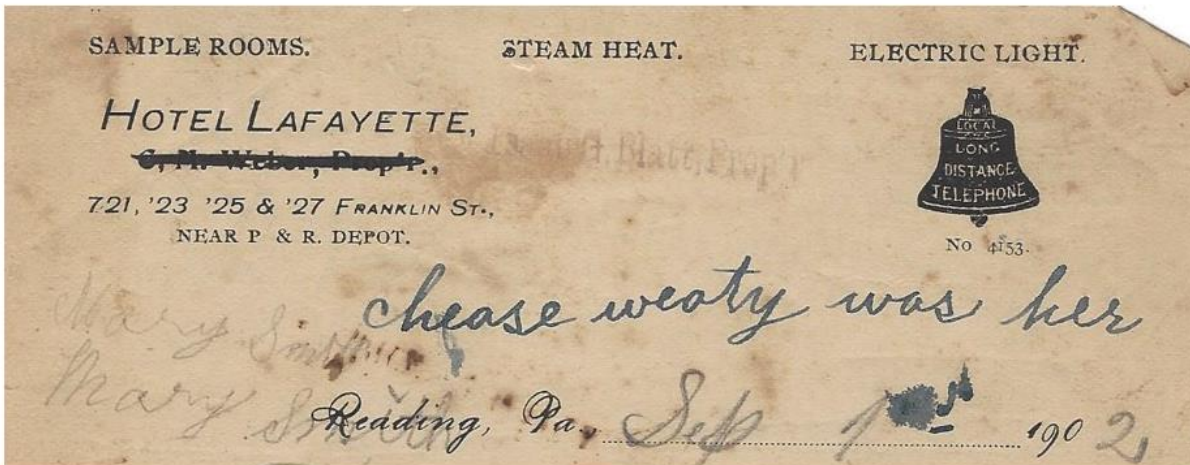 SAMPLE ROOMS. STEAM HEAT. ELECTRIC LIGHT.
HOTEL LAFAYETTE,
C, M. Weber, Prop'r.,
G. Blatt, Prop'r
721, '23 '25 & '27 FRANKLIN ST.,
NEAR P & R. DEPOT.
LOCAL
LONG
DISTANCE
TELEPHONE
No 4153.
chease weaty was her
Mary Smith
Mary Smith
Reading, Pa., Sep 1 1902